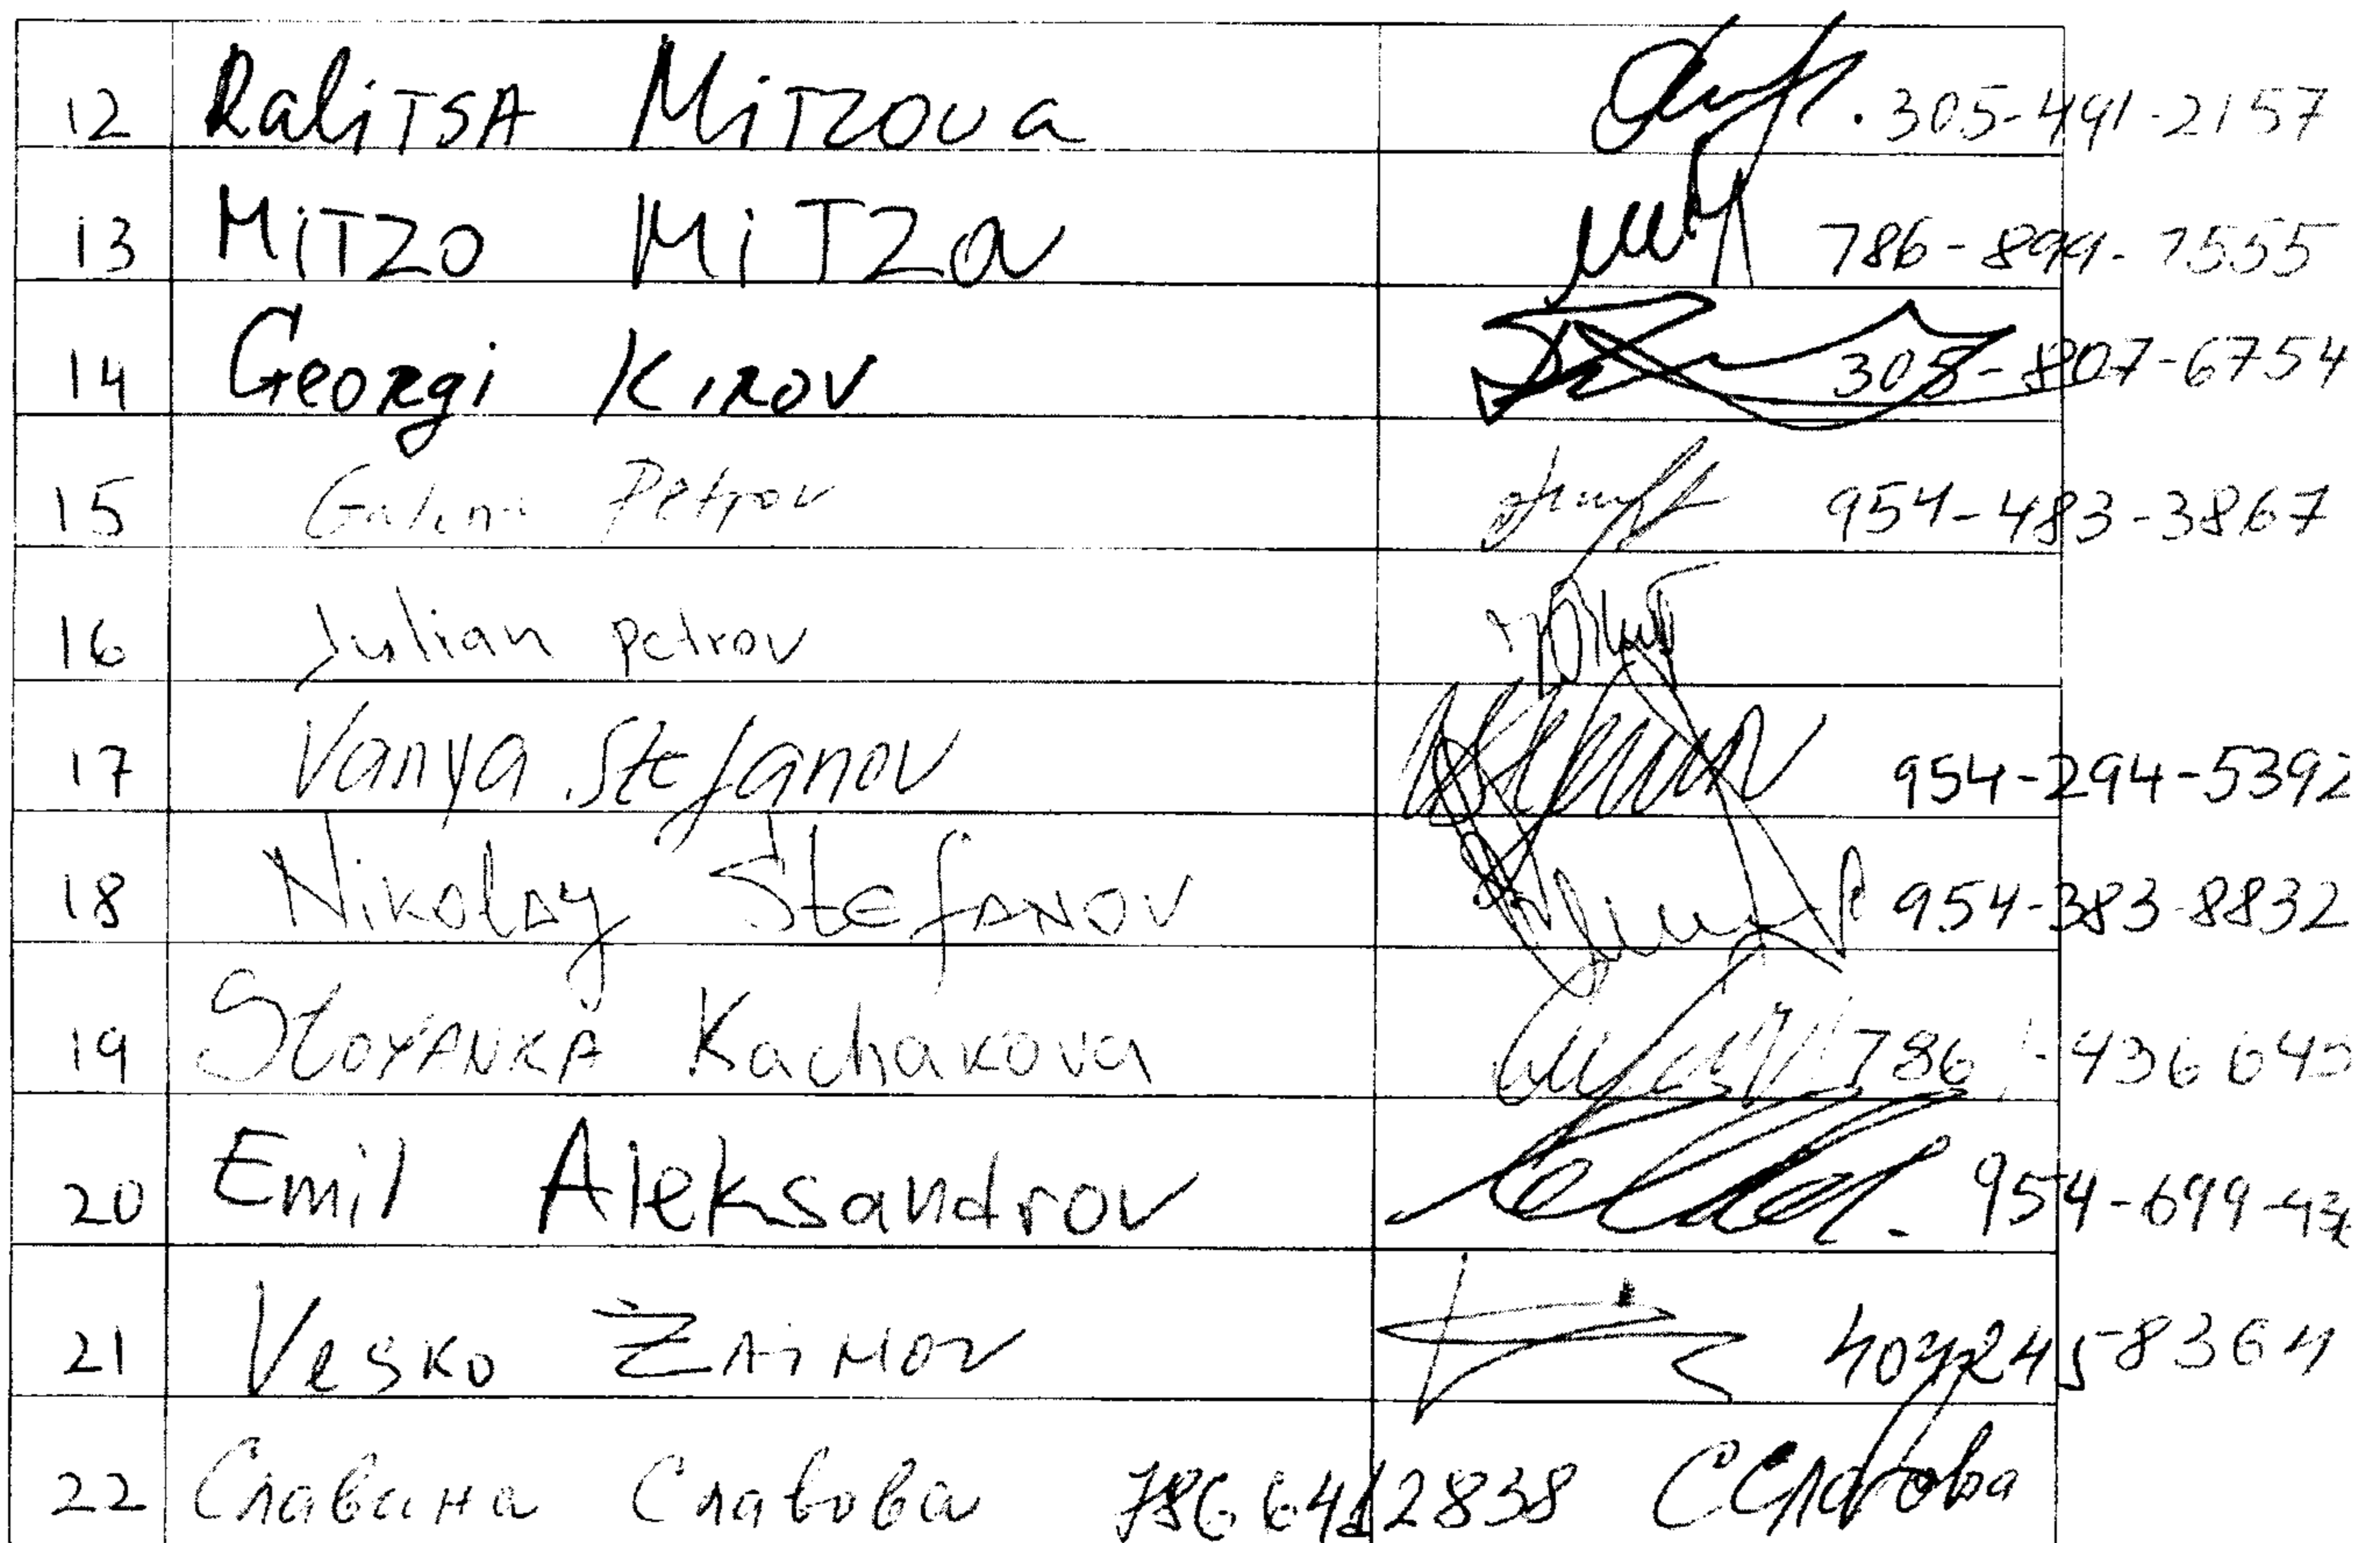 12 RaliTSA MiTZOVa 305-491-2157
13 MiTZO MiTZOV 786-899-7555
14 Georgi Kirov 305-807-6754
15 Petrov 954-483-3867
16 Julian petrov
17 Vanya Stefanov 954-294-5392
18 Nikolay Stefanov 954-383-8832
19 Stoyanka Kachakova 786
20 Emil Aleksandrov 954-699-
21 Vesko Zaimov
22 Славина Славова ССлавова